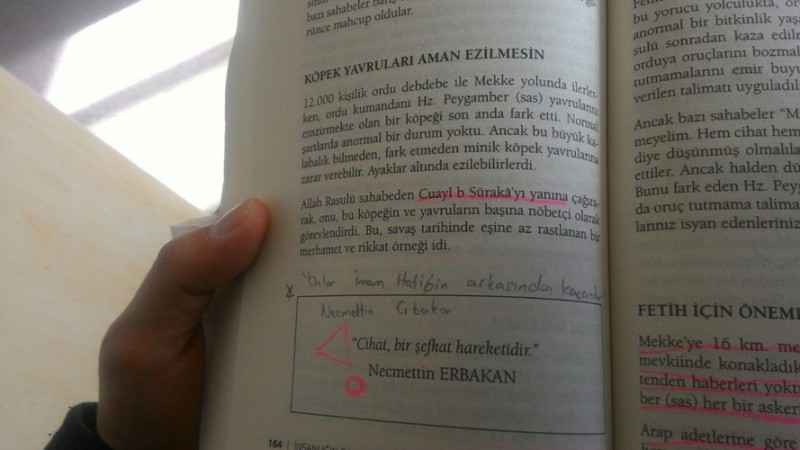 bazı sahabeler
rünce mahcup oldular.
KÖPEK YAVRULARI AMAN EZİLMESİN
12.000 kişilik ordu debdebe ile Mekke yolunda ilerler-
ken, ordu kumandanı Hz. Peygamber (sas) yavrularını
emzirmekte olan bir köpeği son anda fark etti. Normal
şartlarda anormal bir durum yoktu. Ancak bu büyük ka-
labalık bilmeden, fark etmeden minik köpek yavrularına
zarar verebilir. Ayaklar altında ezilebilirlerdi.
Allah Rasulü sahabeden Cuayl b Sûrakâ'yı yanına çağıra-
rak, onu, bu köpeğin ve yavruların başına nöbetçi olarak
görevlendirdi. Bu, savaş tarihinde eşine az rastlanan bir
merhamet ve rikkat örneği idi.
İmam Hatibin arkasından
Necmettin Erbakan
"Cihat, bir şefkat hareketidir."
Necmettin ERBAKAN
164
bu yorucu yolculukta,
anormal bir bitkinlik
sulü sonradan kaza
orduya oruçlarını
tutmamalarını emir
verilen talimatı
Ancak bazı sahabeler
meyelim. Hem cihat hem
diye düşünmüş
ettiler. Ancak halden
Bunu fark eden Hz.
da oruç tutmama
larınız isyan
FETİH İÇİN
Mekke'ye 16 km.
mevkiinde
tenden haberleri
ber (sas) her bir
Arap adetlerine göre